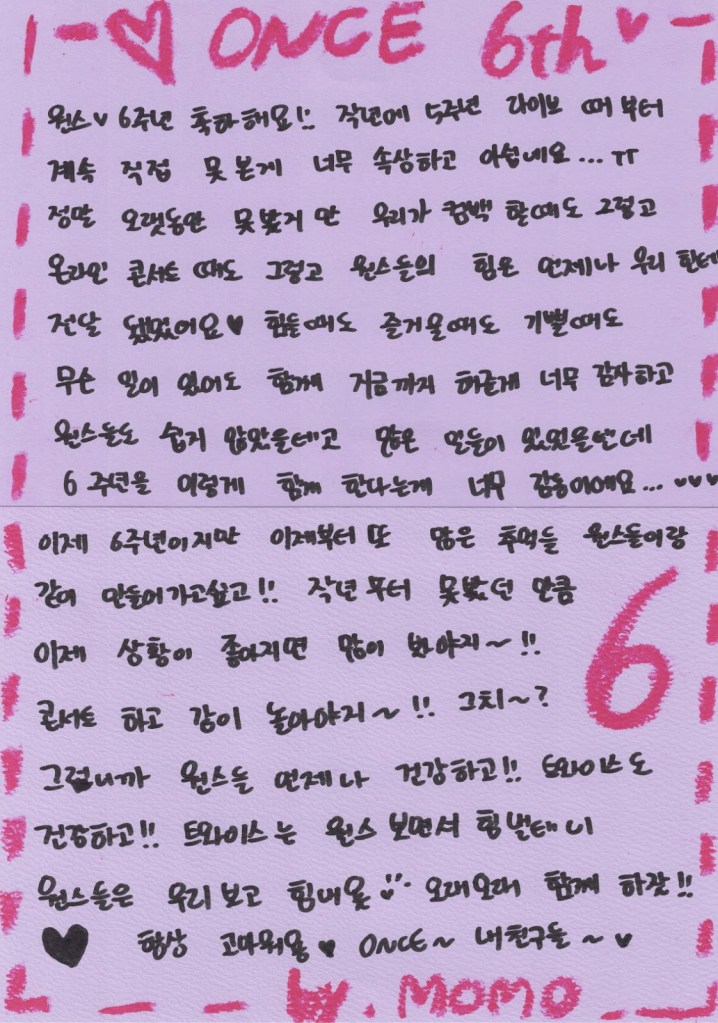 ♡ ONCE 6th ♥
원스♥ 6주년 축하해요!! 작년에 5주년 라이브 때부터
계속 직접 못 본게 너무 속상하고 아쉽네요... ㅠ
정말 오랫동안 못봤지만 우리가 컴백 할때도 그렇고
온라인 콘서트 때도 그렇고 원스들의 힘은 언제나 우리 한테
전달 됐었어요♥ 힘들때도 즐거울때도 기쁠때도
무슨 일이 있어도 함께 지금까지 해준게 너무 감사하고
원스들도 쉽지 않았을테고 많은 일들이 있었을텐데
6주년을 이렇게 함께 한다는게 너무 감동이에요... ♥♥♥
이제 6주년이지만 이제부터 또 많은 추억들 원스들이랑
같이 만들어가고싶고!! 작년부터 못봤던 만큼
이제 상황이 좋아지면 많이 봐야지~!!
콘서트 하고 같이 놀아야지~!! 그치~?
6
그럼니까 원스들 언제나 건강하고!! 트와이스도
건강하고!! 트와이스는 원스 보면서 힘낼테니
원스들은 우리보고 힘내욧 오래오래 함께 하잣!!
♥ 항상 고마워용♥ ONCE~ 내친구들~♥
by. MOMO